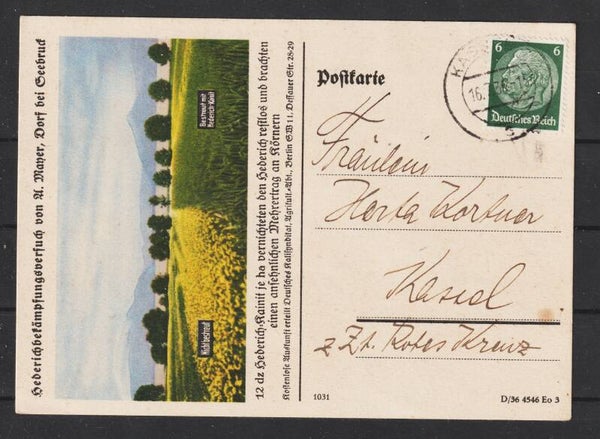 Hederichbekämpfungsversuch von A. Mayer, Dorf bei Seebruck
Bestreut mit
Hederich-Kainit
Nicht bestreut
12 dz Hederich-Kainit je ha vernichteten den Hederich restlos und brachten
einen ansehnlichen Mehrertrag an Körnern
Kostenlose Auskunft erteilt Deutsches Kalisyndikat, Agrikult.-Abt., Berlin SW 11, Dessauer Str. 28-29
Postkarte
6 6
Deutsches Reich
KAS
16.
Fräulein
Herta Körtner
Kassel
z Zt. Rotes Kreuz
1031
D/36 4546 Eo 3